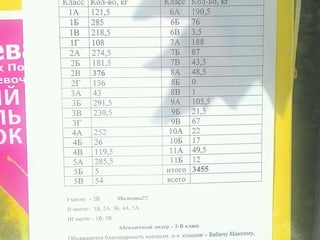 Класс Кол-во, кг Класс Кол-во, кг
1А 121,5 6А 190,5
1Б 285 6Б 76
1В 218,5 6В 3,5
1Г 108 7А 188
2А 274,5 7Б 87
2Б 181,5 8А 48,5
2В 376 8Б 0
2Г 136 8В 1
3А 43 9А 105,5
3Б 291,5 9Б 21,5
3В 230,5 9В 67
3Г 10А 22
4А 252 10Б 17
4Б 26 11А 49,5
4В 119,5 11Б 12
5А 285,5 итого 3455
5Б 5 всего
5В 54
I место - 2В. Молодцы!!!
II место - 1Б, 2А, 3Б, 4А, 5А
III место - 1В, 3В
Абсолютный лидер – 2-В класс
Объявляется благодарность классов – Бабичу Максиму,